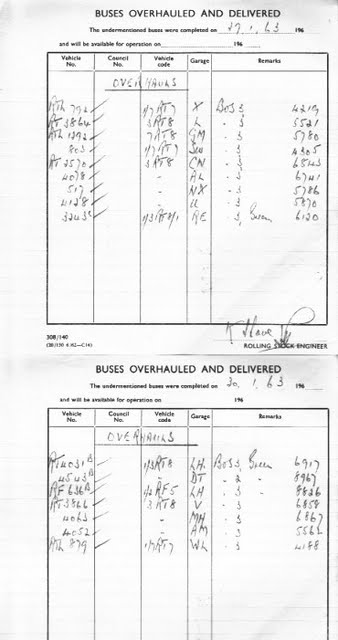 BUSES OVERHAULED AND DELIVERED
The undermentioned buses were completed on 29.1.63 196
and will be available for operation on 196
Vehicle No. Council No. Vehicle code Garage Remarks
OVERHAULS
RTL 792 1/7 RT7 X BOS 3 4219
RT 3864 3 RT8 L - 3 5521
RTL 1292 7 RT8 GM - 3 5780
803 1/7 RT7 - 3 4305
RT 2570 3 RT8 CN - 3 6843
4078 - AL - 3 6741
517 - NX - 3 5786
4128 - U - 3 5870
3243 1/3 RT8/1 RE - 3, Green 6120
308/140
ROLLING STOCK ENGINEER
BUSES OVERHAULED AND DELIVERED
The undermentioned buses were completed on 30.1.63 196
and will be available for operation on 196
Vehicle No. Council No. Vehicle code Garage Remarks
OVERHAULS
RT 4031 1/3 RT8 LH. BOS 3, Green 6917
4543 - DT - 2 - 8967
RF 636 1/2 RF5 LH - 3 - 8826
RT 3866 3 RT8 V - 3 6858
4063 - MH - 3 6867
4052 - AM - 3 5561
RTL 899 1/7 RT7 WL - 3 4188